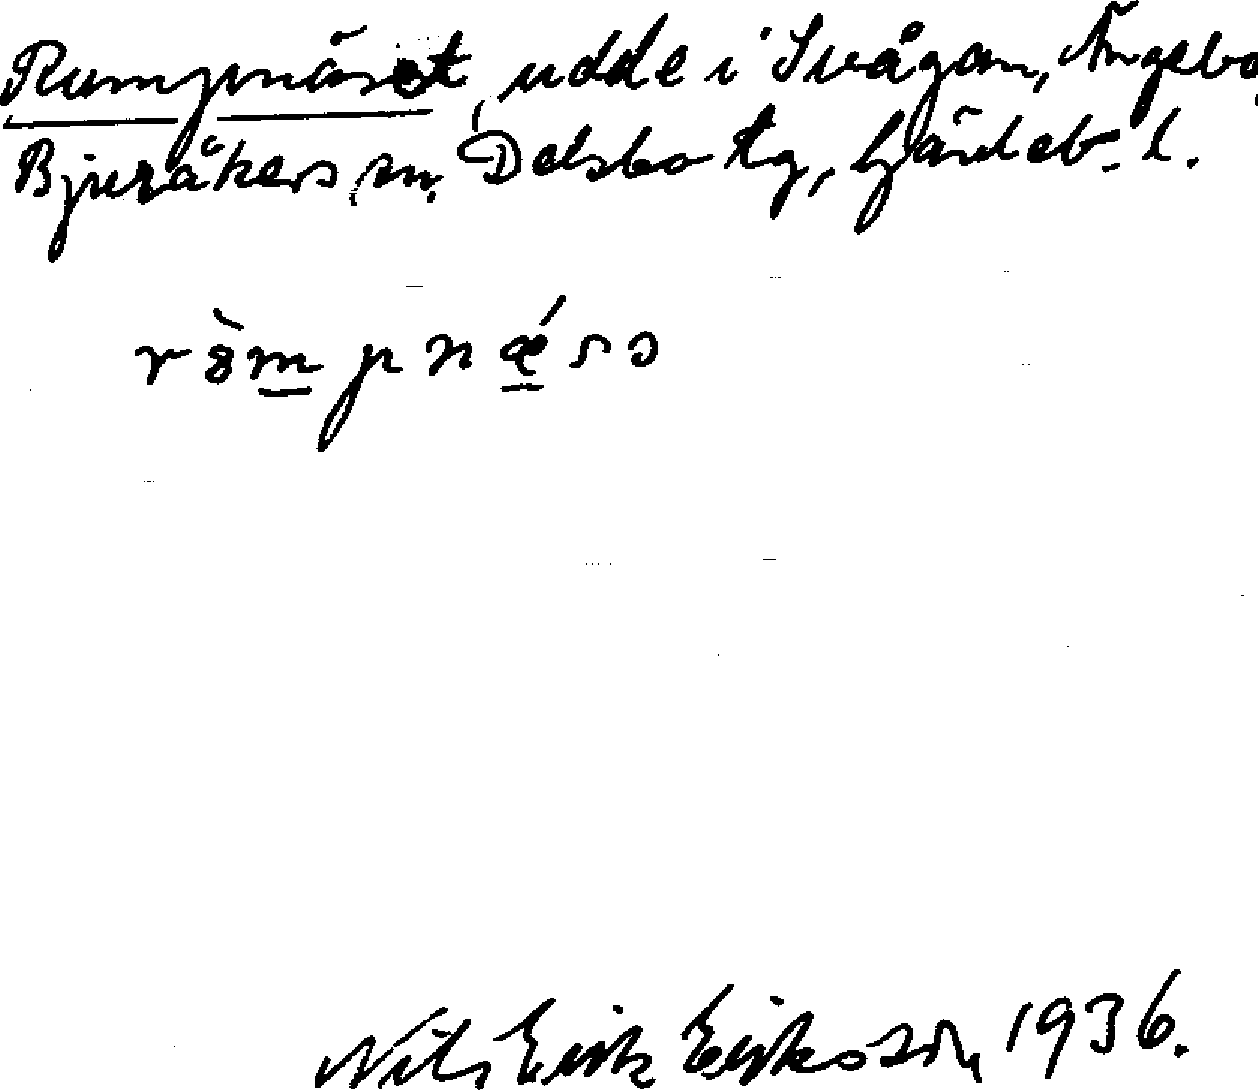 Rumpnäset, udde i Svågan, Ängebo,
Bjuråkers sn, Delsbo tg, Gävleb. l.
Nils Erik Eriksson, 1936.